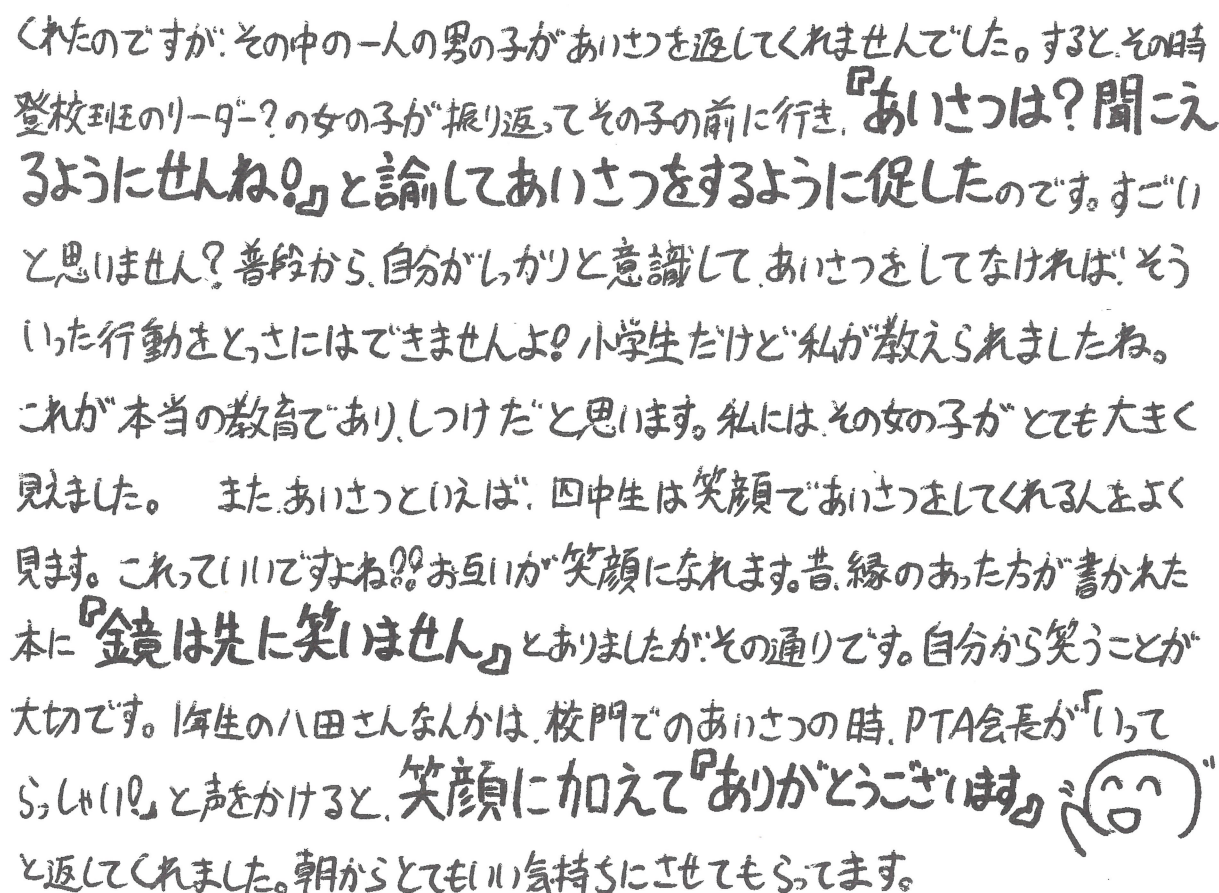 くれたのですが、その中の一人の男の子があいさつを返してくれませんでした。すると、その時
登校班のリーダー?の女の子が振り返ってその子の前に行き、『あいさつは?聞こえ
るようにせんね!』と諭してあいさつをするように促したのです。すごい
と思いません?普段から、自分がしっかりと意識して、あいさつをしてなければ、そう
いった行動をとっさにはできませんよ!小学生だけど私が教えられましたね。
これが本当の教育であり、しつけだと思います。私には、その女の子がとても大きく
見えました。　また、あいさつといえば、四中生は笑顔であいさつをしてくれる人をよく
見ます。これっていいですよね!!お互いが笑顔になれます。昔、縁のあった方が書かれた
本に『鏡は先に笑いません』とありましたが、その通りです。自分から笑うことが
大切です。1年生の八田さんなんかは、校門でのあいさつの時、PTA会長が「いって
らっしゃい!」と声をかけると、笑顔に加えて『ありがとうございます』
と返してくれました。朝からとてもいい気持ちにさせてもらってます。